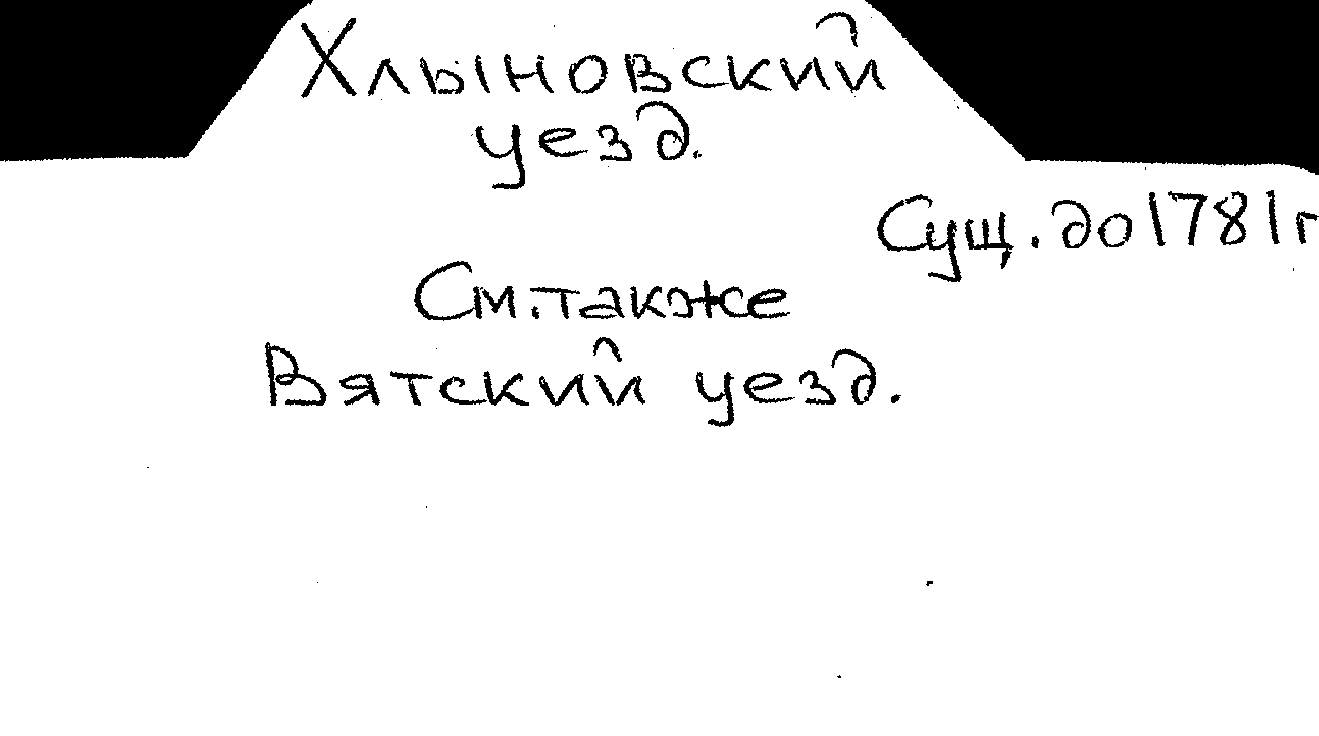 Хлыновский
уезд.
Сущ. до 1781 г
См. также
Вятский уезд.